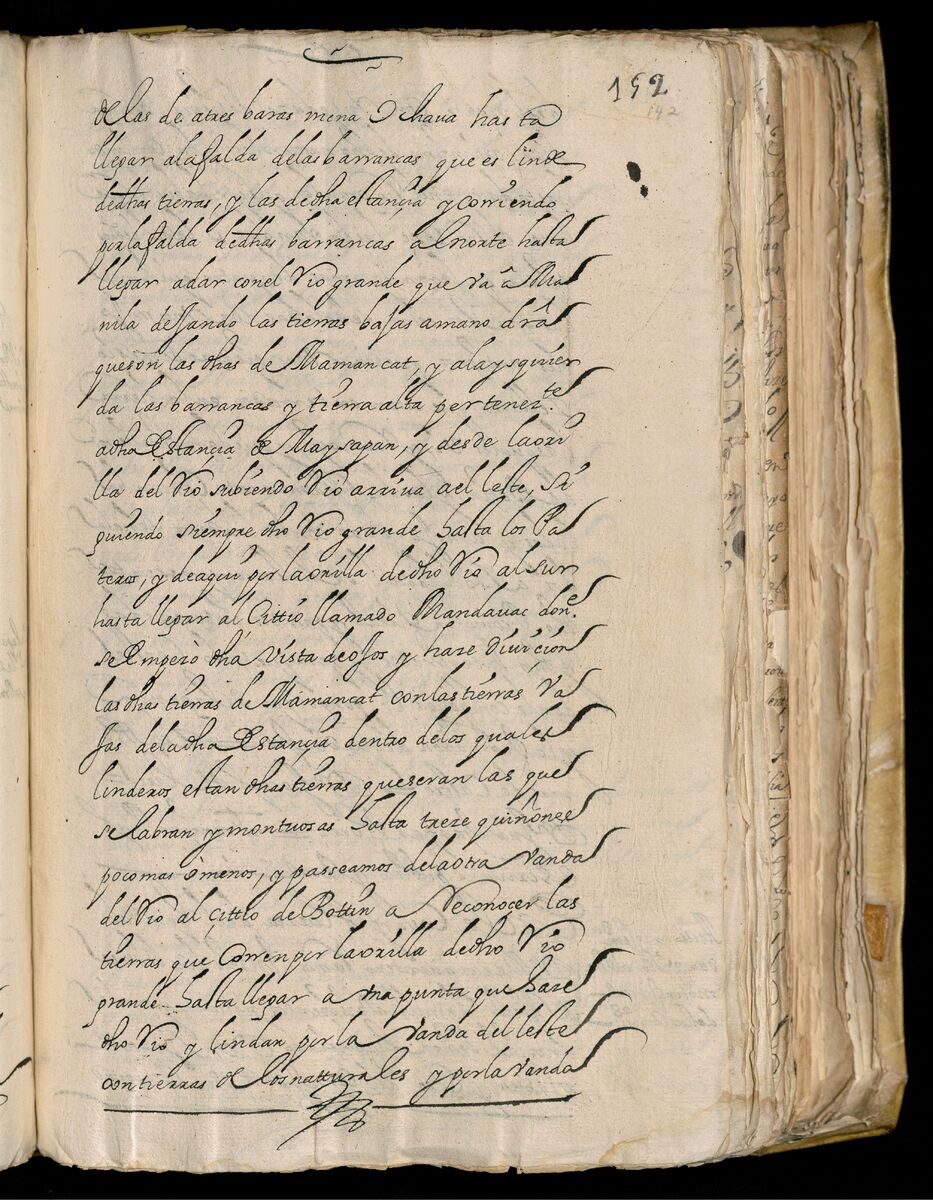 152
142
de las de atres baras mena Ochava hasta
llegar ala falda delas barrancas que es linde
dedhas tierras, y las de dha estançia y corriendo
por la falda dedhas barrancas al norte hasta
llegar adar con el Rio grande que vâ â Ma
nila dejando las tierras bajas amano drâ
que son las dhas de Mamancat, y ala ysquier
da las barrancas y tierra alta pertenezte
adha Estançia de Maysapan, y desde la ori
lla del Rio subiendo Rio arriva a el leste, si
guiendo siempre dho Rio grande hasta los Pa
teros, y de aqui por la orilla de dho Rio al sur
hasta llegar al Cittio llamado Mandavac done
se Empeço dha vista de ojos y haze divicion
las dhas tierras de Mamancat con las tierras va
jas dela dha Estançia dentro delos quales
linderos estan dhas tierras que seran las que
se labran y montuosas hasta treze quiñones
poco mas ô menos, y passeamos dela otra vanda
del Rio al Çittio de Bottin a Reconoçer las
tierras que Corren por la orilla de dho Rio
grande hasta llegar a vna punta que haze
dho Rio y lindan por la vanda del leste
con tierras de los natturales y por la vanda